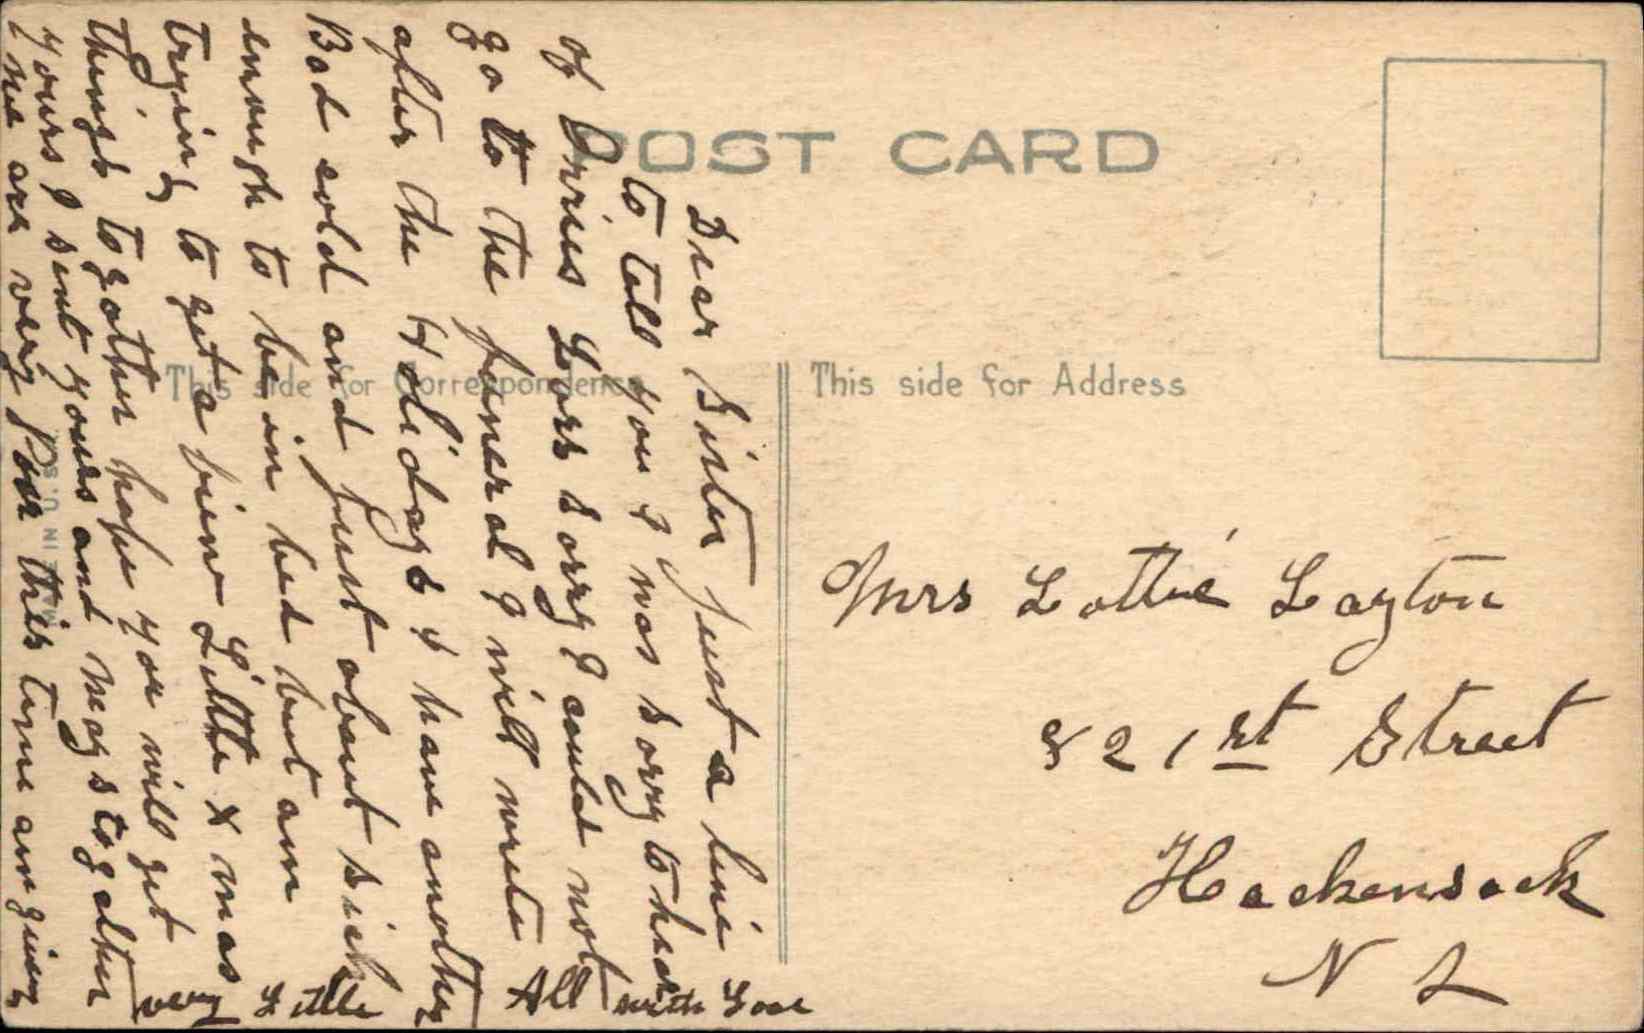 POST CARD
This side for Correspondence
This side for Address
Dear Sister just a line
to tell you I was sorry to hear
of Loss sorry I could not
go to the funeral I will write
after the Holidays I have another
Bad cold and just about sick
enough to be in bed but am
trying to get a few Little Xmas
things to gather hope you will get
yours I sent yours and Mays to gather
me are very Poor this time am giving
very Little
All with Love
Mrs Lottie Layton
821st Street
Hackensack
N J